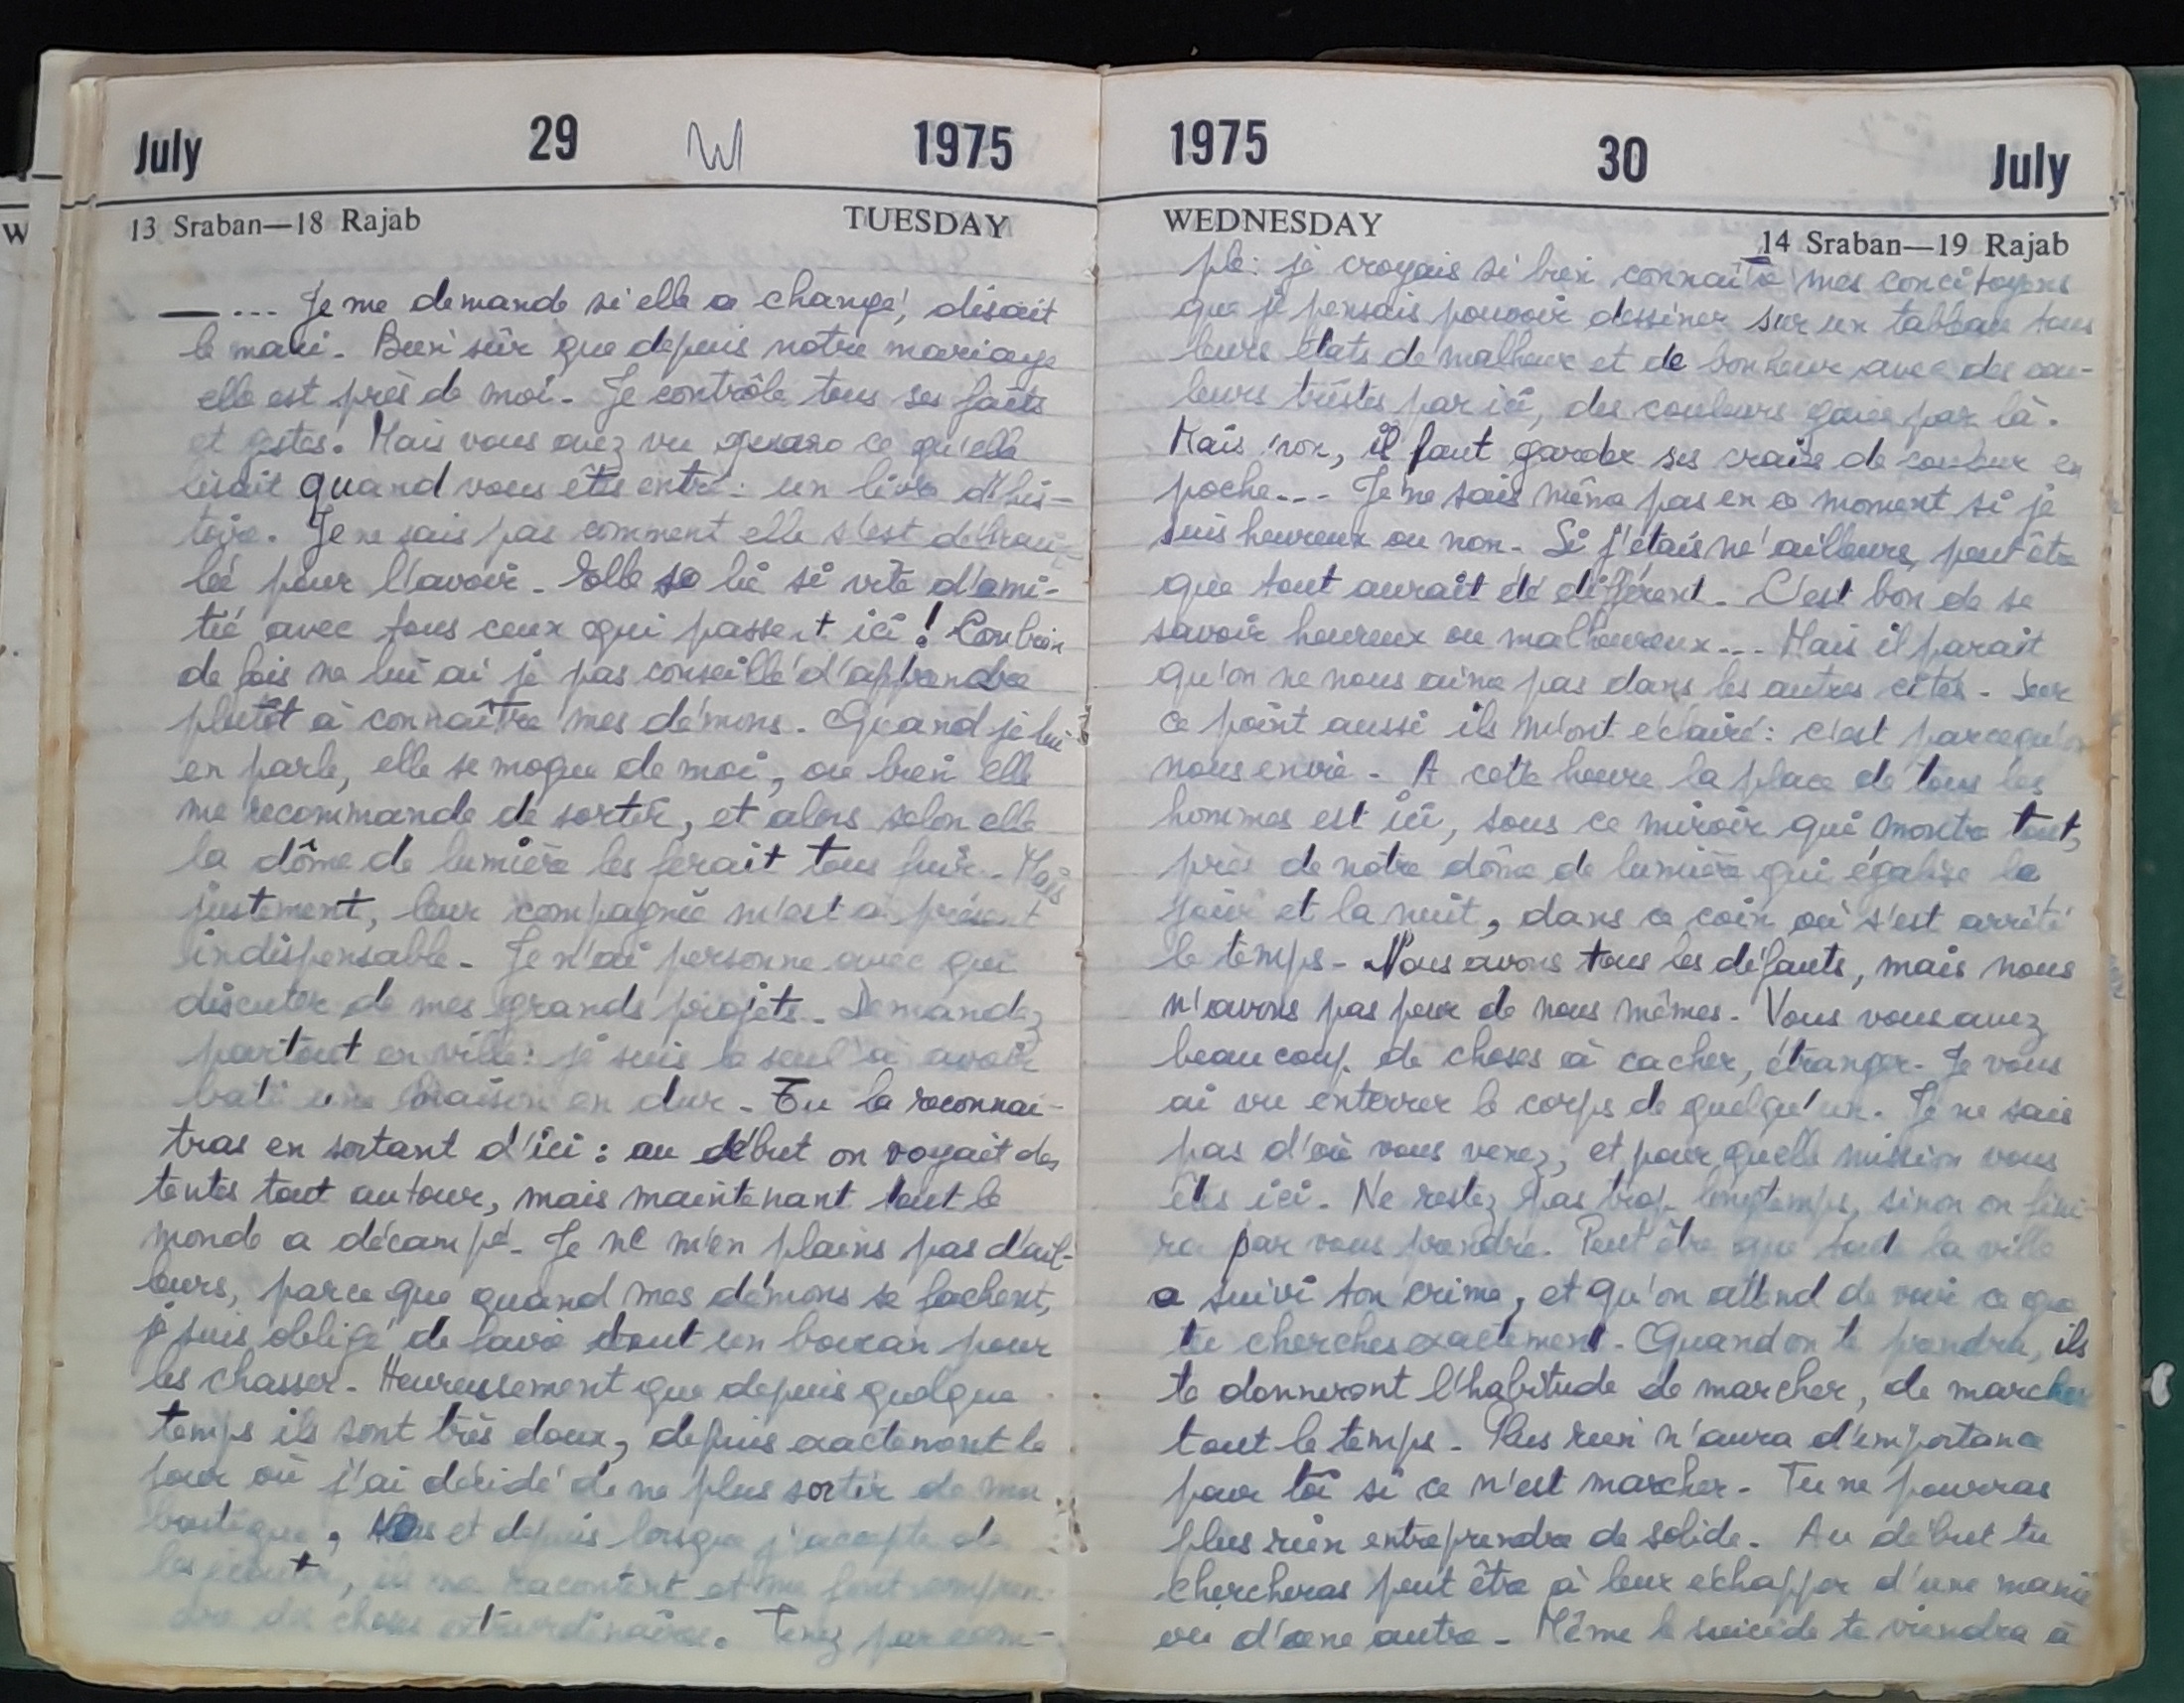 July 29 W 1975
13 Sraban—18 Rajab TUESDAY
—... Je me demande si elle a changé, disait
le mari. Bien sûr que depuis notre mariage
elle est près de moi. Je contrôle tous ses faits
et gestes. Mais vous avez vu ce qu'elle
lisait quand vous êtes entré : un livre d'his-
toire. Je ne sais pas comment elle s'est débrouil-
lée pour l'avoir. Elle se lie si vite d'ami-
tié avec tous ceux qui passent ici ! Combien
de fois ne lui ai je pas conseillé d'apprendre
plutôt à connaître mes démons. Quand je lui
en parle, elle se moque de moi, ou bien elle
me recommande de sortir, et alors selon elle
la dôme de lumière les ferait tous fuir. Mais
justement, leur compagnie m'est à présent
indispensable. Je n'ai personne avec qui
discuter de mes grands projets. Demandez
partout en ville : je suis le seul à avoir
bati une maison en dur. Tu la reconnai-
tras en sortant d'ici : au début on voyait des
tentes tout autour, mais maintenant tout le
monde a décampé. Je ne m'en plains pas d'ail-
leurs, parce que quand mes démons se fachent,
je suis obligé de faire tout un boucan pour
les chasser. Heureusement que depuis quelque
temps ils sont très doux, depuis exactement le
jour où j'ai décidé de ne plus sortir de ma
boutique, et depuis lorsque j'accepte de
les écouter, ils me racontent et me font compren-
dre des choses extraordinaires. Tenez par exem-
1975 30 July
WEDNESDAY 14 Sraban—19 Rajab
ple : je croyais si bien connaître mes concitoyens
que je pensais pouvoir dessiner sur un tableau tous
leurs états de malheur et de bonheur avec des cou-
leurs tristes par ici, des couleurs gaies par là.
Mais non, il faut garder ses craies de couleur en
poche... Je ne sais même pas en ce moment si je
suis heureux ou non. Si j'étais né ailleurs, peut être
que tout aurait été différent. C'est bon de se
savoir heureux ou malheureux... Mais il parait
qu'on ne nous aime pas dans les autres cités. Sur
ce point aussi ils m'ont éclairé : c'est parcequ'on
nous envie. A cette heure la place de tous les
hommes est ici, sous ce miroir qui montre tout,
près de notre dôme de lumière qui égalise le
jour et la nuit, dans ce coin où s'est arrêté
le temps. Nous avons tous les défauts, mais nous
n'avons pas peur de nous mêmes. Vous vous avez
beaucoup de choses à cacher, étranger. Je vous
ai vu enterrer le corps de quelqu'un. Je ne sais
pas d'où vous venez, et pour quelle mission vous
êtes ici. Ne restez pas trop longtemps, sinon on fini-
ra par vous prendre. Peut être que toute la ville
a suivi ton crime, et qu'on attend de voir ce que
tu cherches exactement. Quand on te prendra, ils
te donneront l'habitude de marcher, de marcher
tout le temps. Plus rien n'aura d'importance
pour toi si ce n'est marcher. Tu ne pourras
plus rien entreprendre de solide. Au début tu
chercheras peut être à leur échapper d'une manière
ou d'une autre. Même le suicide te viendra à